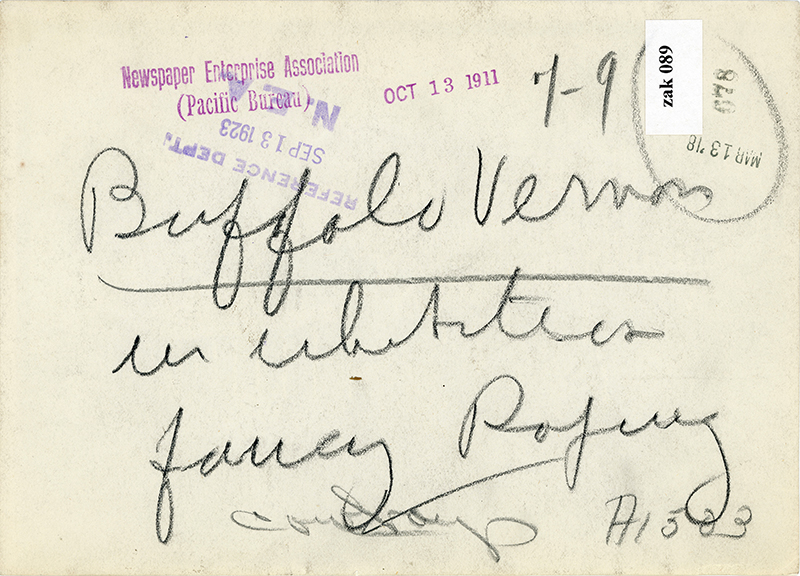 Newspaper Enterprise Association
(Pacific Bureau)
OCT 13 1911
7-9
zak 089
678
MAR 13 '18
N.E.A.
SEP 13 1923
REFERENCE DEPT.
Buffalo Vernon
in
fancy Roping
cowboys
A1533